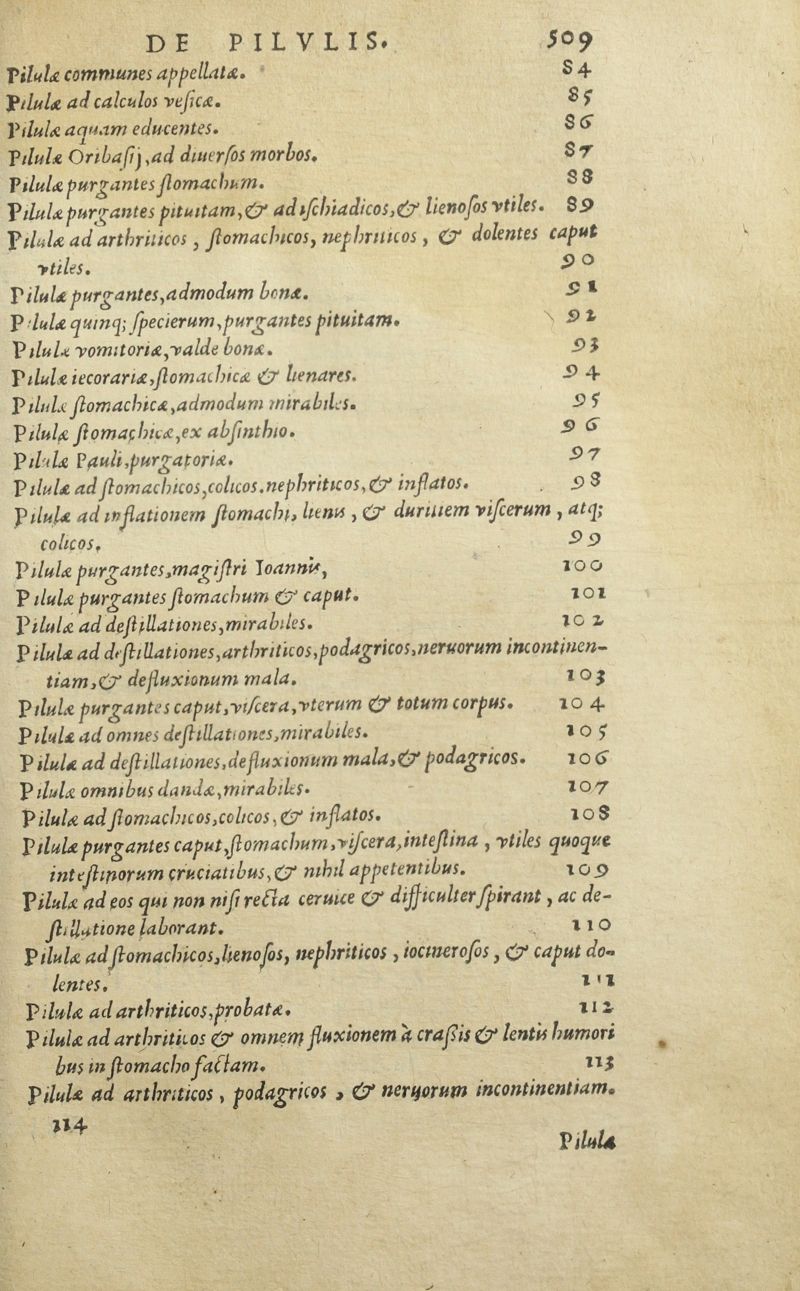 DE PILVLIS. 509
Pilulæ communes appellatæ. 84
Pilulæ ad calculos vesicæ. 85
Pilulæ aquam educentes. 86
Pilulæ Oribasij, ad diuersos morbos. 87
Pilulæ purgantes stomachum. 88
Pilulæ purgantes pituitam, & ad ischiadicos, & lienosos vtiles. 89
Pilulæ ad arthriticos, stomachicos, nephriticos, & dolentes caput
vtiles. 90
Pilulæ purgantes, admodum bonæ. 91
Pilulæ quinq; specierum, purgantes pituitam. 92
Pilulæ vomitoriæ, valde bonæ. 93
Pilulæ iecorariæ, stomachicæ & lienares. 94
Pilulæ stomachicæ, admodum mirabiles. 95
Pilulæ stomachicæ, ex absinthio. 96
Pilulæ Pauli, purgatoriæ. 97
Pilulæ ad stomachicos, colicos, nephriticos, & inflatos. 98
Pilulæ ad inflationem stomachi, lienis, & duritiem viscerum, atq;
colicos. 99
Pilulæ purgantes, magistri Ioannis, 100
Pilulæ purgantes stomachum & caput. 101
Pilulæ ad destillationes, mirabiles. 102
Pilulæ ad destillationes, arthriticos, podagricos, neruorum incontinen-
tiam, & defluxionum mala. 103
Pilulæ purgantes caput, viscera, vterum & totum corpus. 104
Pilulæ ad omnes destillationes, mirabiles. 105
Pilulæ ad destillationes, defluxionum mala, & podagricos. 106
Pilulæ omnibus dandæ, mirabiles. 107
Pilulæ ad stomachicos, colicos, & inflatos. 108
Pilulæ purgantes caput, stomachum, viscera, intestina, vtiles quoque
intestinorum cruciatibus, & nihil appetentibus. 109
Pilulæ ad eos qui non nisi recta ceruice & difficulter spirant, ac de-
stillatione laborant. 110
Pilulæ ad stomachicos, lienosos, nephriticos, iocinerosos, & caput do-
lentes. 111
Pilulæ ad arthriticos, probatæ. 112
Pilulæ ad arthriticos & omnem fluxionem à crassis & lentis humori
bus in stomacho factam. 113
Pilulæ ad arthriticos, podagricos, & neruorum incontinentiam.
114
Pilulæ